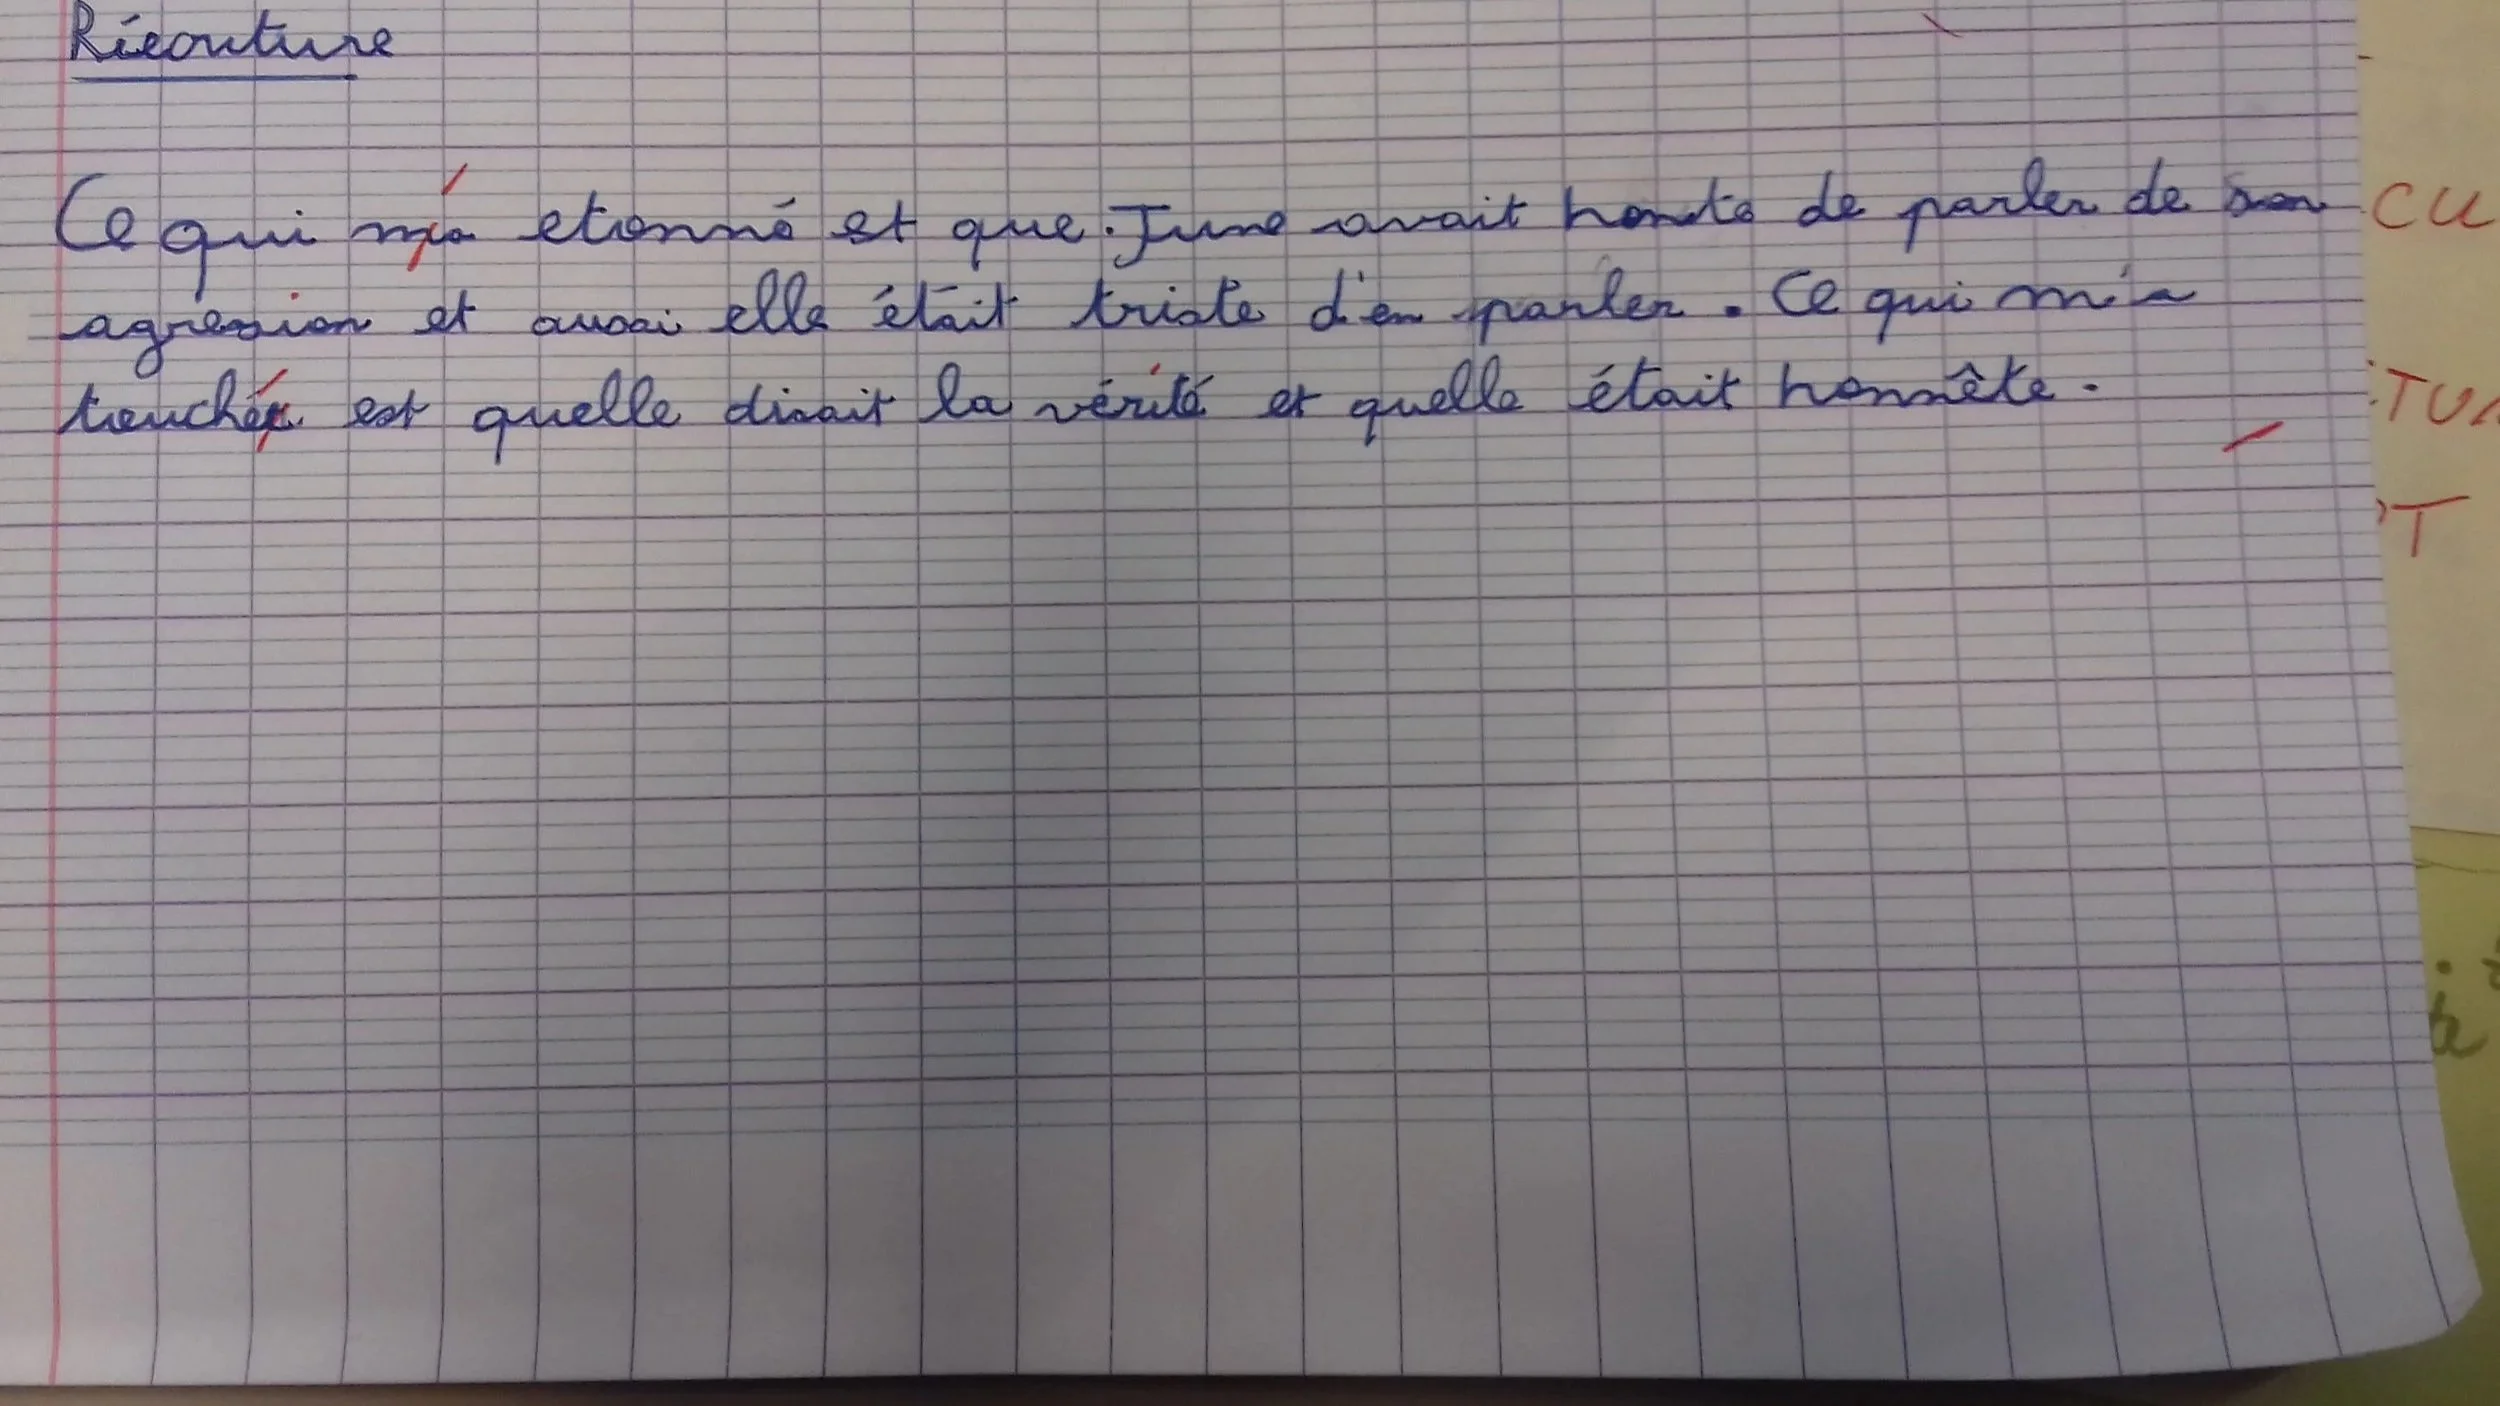 Riécouture
Ce qui m'a etonné et que June avait honte de parler de son
agression et aussi elle était triste d'en parler. Ce qui m'a
touché est quelle disait la vérité et quelle était honnête.
CU
TUR
T
te